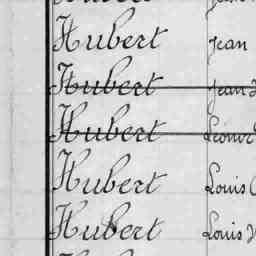 Hubert Jean
Hubert Jean
Hubert Léonie
Hubert Louis
Hubert Louis